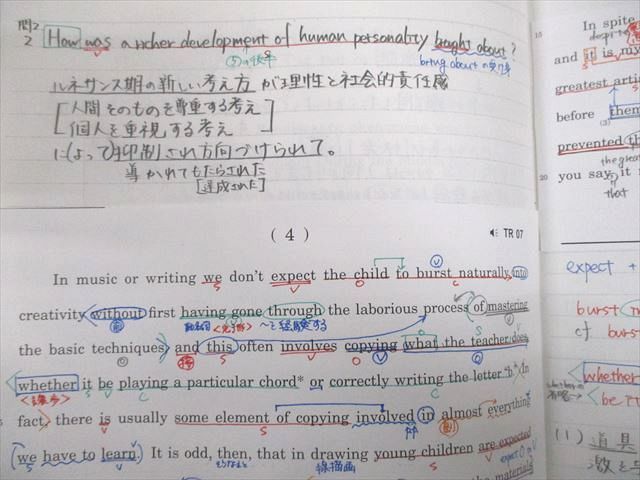 問2
2 How was a richer development of human personality brought about?
bring about の受け身
ルネサンス期の新しい考え方が理性と社会的責任感
人間そのものを尊重する考え
個人を重視する考え
によって抑制され方向づけられて。
導かれてもたらされた
[達成された]
(4)
TR 07
In music or writing we don't expect the child to burst naturally into
creativity without first having gone through the laborious process of mastering
動名詞 <完了形> ～を経験する
the basic techniques, and this often involves copying what the teacher does,
whether it be playing a particular chord* or correctly writing the letter "b". In
<譲歩>
fact, there is usually some element of copying involved in almost everything
we have to learn. It is odd, then, that in drawing young children are expected
線描画
the materials
15
In spite
despite
and it is my
greatest arti
before them
prevented th
the great
20
you say it
that
expect +
burst
cf burst
whether
be it
(1) 道具